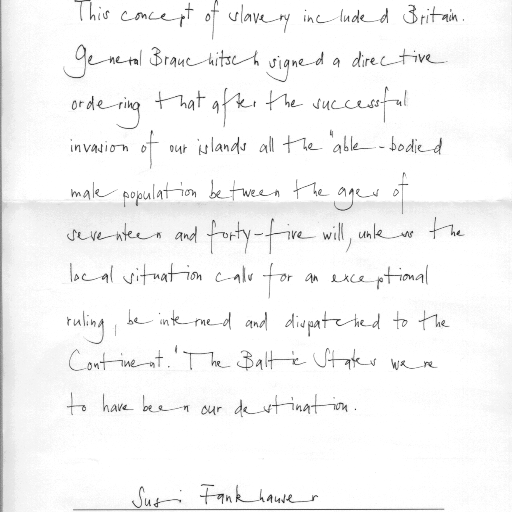 This concept of slavery included Britain.
General Brauchitsch signed a directive
ordering that after the successful
invasion of our islands all the "able-bodied
male population between the ages of
seventeen and forty-five will, unless the
local situation calls for an exceptional
ruling, be interned and dispatched to the
Continent." The Baltic States were
to have been our destination.
Susi Fankhauser